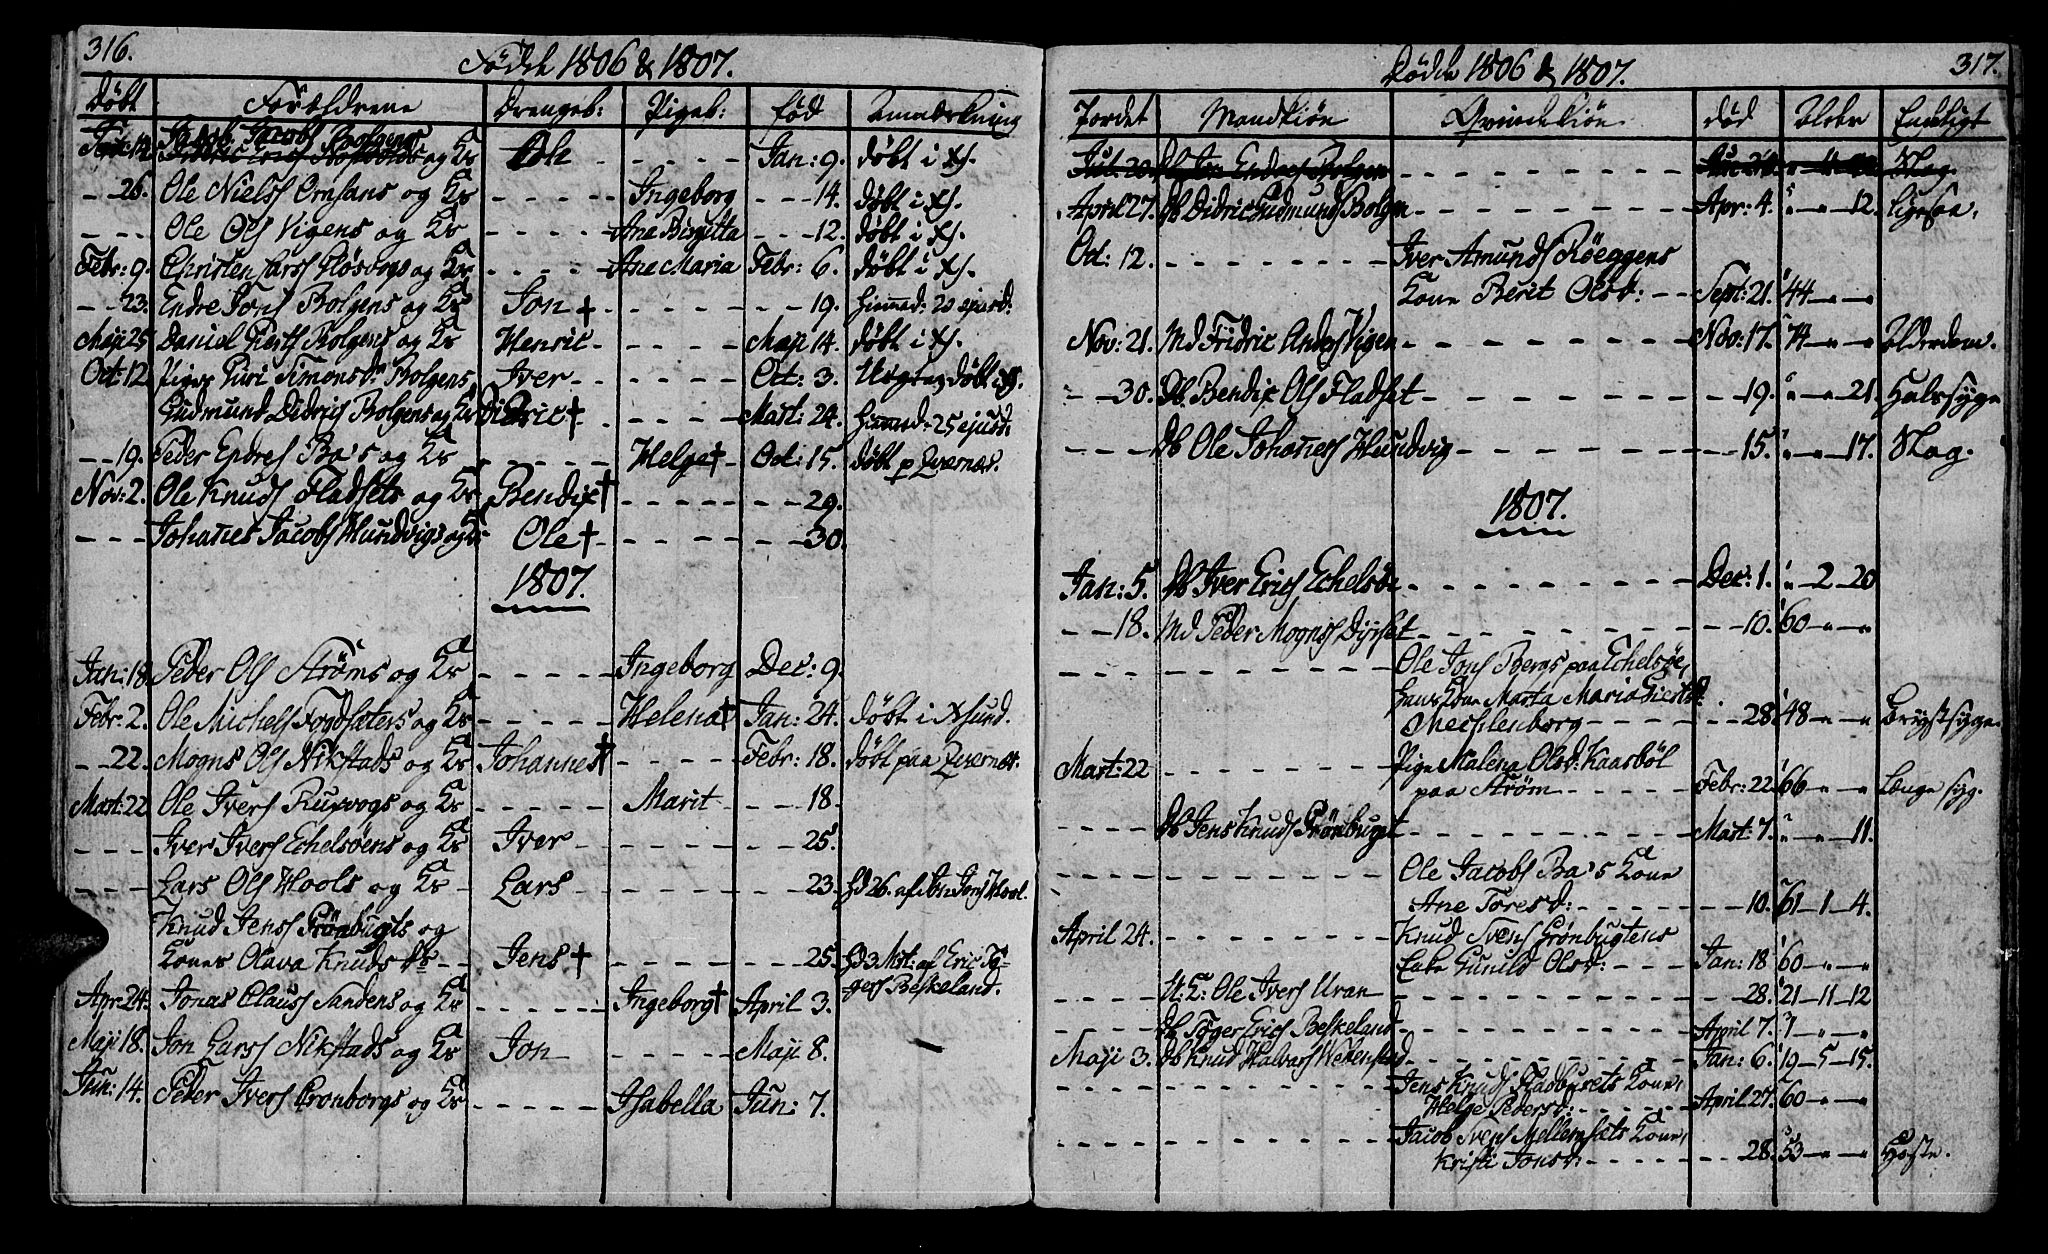 316.
Födde 1806 & 1807.
Döbt Forældrene Drengeb: Pigeb: född Anmærkning
Jan: 12 Jacobs Bolgens og K Ole - - - - Jan: 9. döbt i X.
- - 26. Ole Niels Ornsans og K - - - - - Ingeborg - - - 14. döbt i X.
- - - Ole Ols Vigens og K - - - - - Ane Birgitta - - - 12. döbt i X.
Febr: 9. Christen Lars og K - - - - - Ane Maria Febr: 6. döbt i X.
- - 23. Endre Jons Bolgens og K Jon † - - - - - - - 19. Hiemmed: 20 ejusd:
Maji 25 Daniel Peers Bolgens og K Henric - - - - - Maji 14. döbt i X.
Oct: 12. Pigen Guri Simonsd: Bolgens Iver - - - - - Oct: 3. Uægte döbt i X.
Gudmund Didrics Bolgens og K Didric † - - - - - Mart: 24. Hiemmed: 25 ejusd:
- - 19. Peder Endres Ba's og K - - - - - Helge † - Oct: 15. döbt p Qvernæs.
Nov: 2. Ole Knuds Fladsets og K Bendix † - - - - - - - 29.
- - - Johanes Jacobs Hundvigs og K Ole † - - - - - - - 30.
1807.
Jan: 18. Peder Ols Ströms og K - - - - - Ingeborg Dec: 9.
Febr: 2. Ole Michels Fordsæters og K - - - - - Helena † Jan: 24. döbt i Xsund.
- - 22. Mogns Ols Nikstads og K Johannes † - - - - - Febr: 18. döbt paa Qvernæs:
Mart: 22 Ole Ivers Rupvogs og K - - - - - Marit - - - 18.
- - - Iver Ivers Echelsöens og K Iver - - - - - - - 25.
- - - Lars Ols Hools og K - Lars - - - - - - - 23. Hd 26. af Jon Hool.
Knud Jens Grönbugts og
Kones Olava Knuds dr - - Jens † - - - - - - - 25. Hd 3 Mrt: af Eric To-
gers Beskeland.
Apr: 24. Jonas Claus Sandens og K - - - - - Ingeborg † April 3.
Maji 18. Jon Lars Nikstads og K Jon - - - - - Maji 8.
Jun: 14. Peder Ivers Cronborgs og K - - - - - Isabella Jun: 7.
317.
Dödde 1806 & 1807.
Jordet Mandkiön Qvindekiön död Alder Endligt
Jon Endres Bolgen - - - - - - - Slag.
April 27. Db Didric Gudmunds Bolgen - - - - - - - Apr: 4. " - " - 12. ligesaa.
Oct: 12. - - - - - - - Iver Amunds Röeggens
Kone Berit Olsd: - - Sept: 21. 44 - " - "
Nov: 21. Md Fridric Anders Vigen - - - - - - - Nov: 17. 74 - " - " Alderdom.
- - 30. Db Bendix Ols Fladset - - - - - - - 19. " - " 21. Halssyge
- - - - Db Ole Johanes Hundvig - - - - - - - 15. " - " - 17. Slag.
1807.
Jan: 5. Db Iver Erics Echelsöe - - - - - - - Dec: 1. " - 2 - 20
- - 18. Md Peder Mogns Dyrset - - - - - - - 10. 60 - " - "
- - - - - - - - - - - Ole Jons Bergs paa Echelsöe,
hans Kone Marta Maria Giertsd:
Mechlenborg - - - - - - - 28. 48 - " - " Brystsyge.
Mart: 22 - - - - - - - Pige Malena Olsd: Kaasböl
paa Ström - - - - - Febr: 22. 66 - " - " Længe syg.
- - - - Db Jens Knuds Grönbugt - - - - - - - Mart: 7. " - " - 11.
- - - - - - - - - - - Ole Jacobs Ba's Kone
Ane Toresd: - - - - - - - 10. 61 - 1 - 4.
April 24. - - - - - - - Knud Svens Grönbugtens
Enke Gunild Olsd: - - - Jan: 18 60 - " - "
- - - - U: K: Ole Ivers Uran - - - - - - - 28. 21 - 11 - 12
- - - - Db Toger Erics Beskeland - - - - - - - April 7. 7 - " - "
Maji 3. Db Knud Halvars - - - - - - - Jan: 6. 19 - 5 - 15.
- - - - - - - - - - - Jens Knuds Kone,
Helge Pedersd: - - - - - April 27. 60 - " - "
- - - - - - - - - - - Jacob Svens Mellemsets Kone,
Kristi Jonsd: - - - - - - - 28. 53 - " - " Hoste.